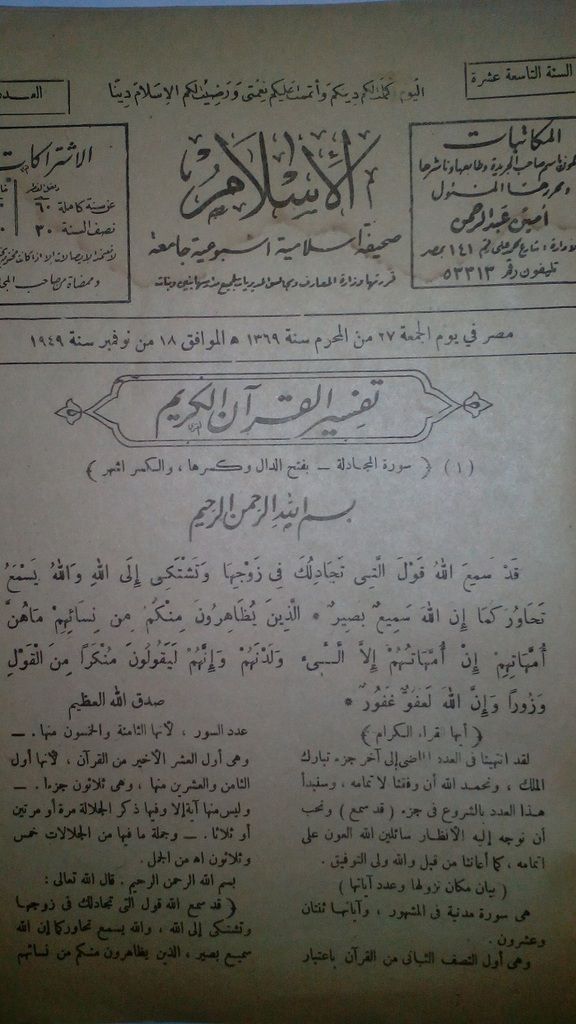 السنة التاسعة عشرة
اليوم أكملت لكم دينكم وأتممت عليكم نعمتى ورضيت لكم الإسلام دينا
العدد
المكاتبات
تكون باسم صاحب الجريدة وطابعها وناشرها
ومحررها المسئول
أمين عبد الرحمن
الإدارة: شارع محمد على رقم ١٤١ بمصر
تليفون رقم ٥٢٣١٣
الإسلام
صحيفة اسلامية اسبوعية جامعة
قررتها وزارة المعارف ومجالس المديريات بجميع مدارسها بنين وبنات
الاشتراكات
داخل القطر
عن سنة كاملة ٦٠
نصف السنة ٣٠
مصر في يوم الجمعة ٢٧ من المحرم سنة ١٣٦٩ ه الموافق ١٨ من نوفمبر سنة ١٩٤٩
تفسير القرآن الكريم
(١) ( سورة المجادلة — بفتح الدال وكسرها ، والكسر أشهر )
بسم الله الرحمن الرحيم
قَدْ سَمِعَ اللهُ قَوْلَ الَّتِى تُجَادِلُكَ فِى زَوْجِهَا وَتَشْتَكِى إِلَى اللهِ وَاللهُ يَسْمَعُ
تَحَاوُرَكُمَا إِن اللهَ سَمِيعٌ بصِيرٌ * الَّذِينَ يُظَاهِرُونَ مِنْكُمْ مِن نِسَائِهِمْ مَاهُنَّ
أُمَّهَاتِهِمْ إِنْ أُمَّهَاتُهُمْ إِلاَّ الَّـٰـئِى وَلَدْنَهُمْ وَإِنَّهُمْ لَيَقُولُونَ مُنْكَرًا مِنَ الْقَوْلِ
وَزُوراً وَإِنَّ اللهَ لَعَفُوٌّ غَفُورٌ *
صدق الله العظيم
( أيها القراء الكرام )
لقد انتهينا فى العدد الماضى إلى آخر جزء تبارك
الملك ، ونحمد الله أن وفقنا لاتمامه ، وسنبدأ
هذا العدد بالشروع فى جزء ( قد سمع ) ونحب
أن نوجه إليه الأنظار سائلين الله العون على
اتمامه ، كما أعاننا من قبل والله ولى التوفيق .
( بيان مكان نزولها وعدد آياتها )
هى سورة مدنية فى المشهور ، وآياتها ثنتان
وعشرون .
وهى أول النصف الثانى من القرآن باعتبار
عدد السور ، لأنها الثامنة والخمسون منها . —
وهى أول العشر الأخير من القرآن ، لأنها أول
الثامن والعشرين منها ، وهى ثلاثون جزءا . —
وليس منها آية إلا وفيها ذكر الجلالة مرة أو مرتين
أو ثلاثا . — وجملة ما فيها من الجلالات خمس
وثلاثون اه من الجمل .
بسم الله الرحمن الرحيم . قال الله تعالى :
( قد سمع الله قول التى تجادلك فى زوجها
وتشتكى إلى الله ، والله يسمع تحاوركما إن الله
سميع بصير ، الذين يظاهرون منكم من نسائهم